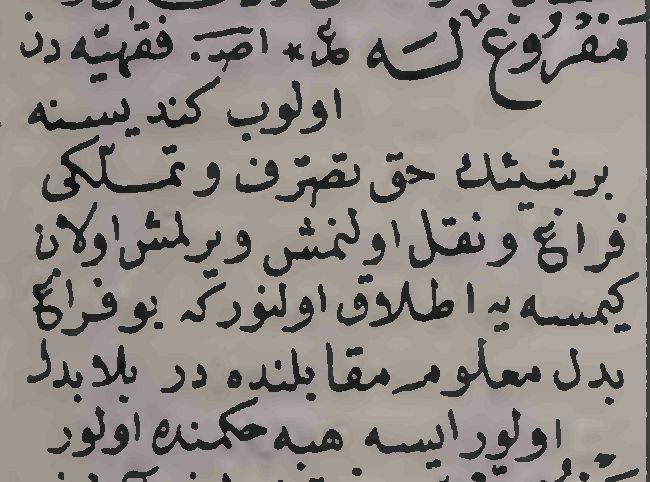 مفروغ له ع * اصـ. فقهيّه دن
اولوب كنديسنه
برشيئك حق تصرّف وتملّكى
فراغ ونقل اولنمش ويرلمش اولان
كيمسه يه اطلاق اولنوركه بو فراغ
بدل معلوم مقابلنده در بلا بدل
اولور ايسه هبه حكمنده اولور